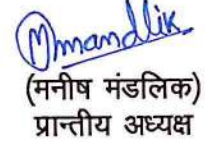 Mmandlik
(मनीष मंडलिक)
प्रान्तीय अध्यक्ष